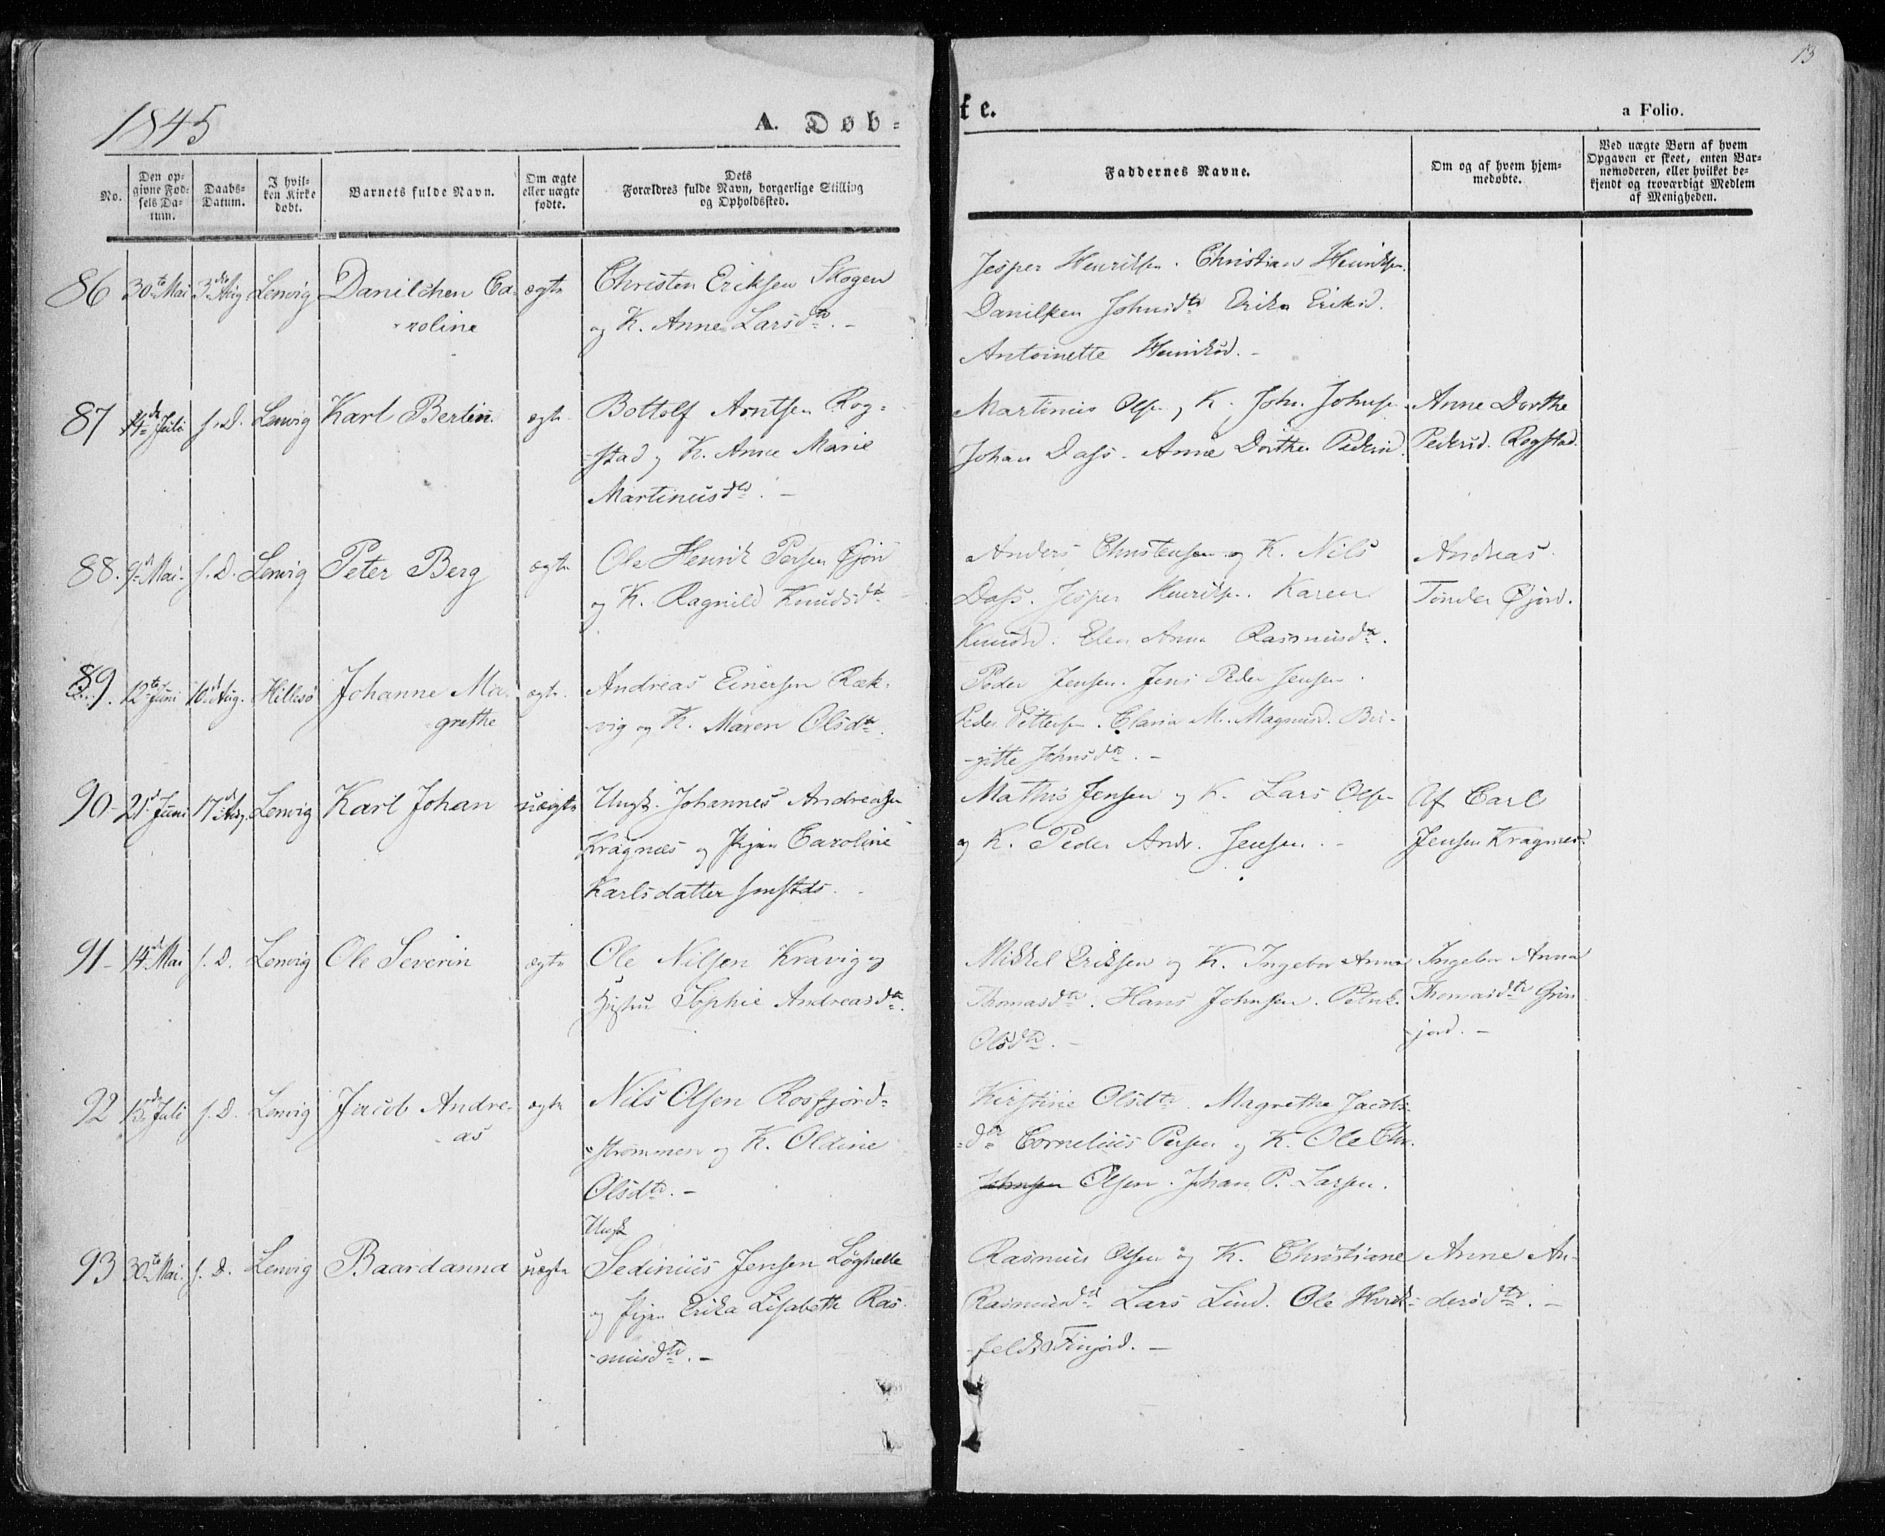 13
1845
A. Døb-
fe.
a Folio.
No.
Den op-
givne Fød-
sels Da-
tum.
Daabs-
Datum.
I hvil-
ken Kirke
døbt.
Barnets fulde Navn.
Om ægte
eller uægte
fødte.
Dets
Forældres fulde Navn, borgerlige Stilling
og Opholdssted.
Faddernes Navne.
Om og af hvem hjem-
medøbte.
Ved uægte Børn af hvem
Opgaven er skeet, enten Bar-
nemoderen, eller hvilket be-
kjendt og troværdigt Medlem
af Menigheden.
86 30te Mai 3die Aug Lenvig Danilchen Ca- ægte Christen Eriksen Skogen
roline og K. Anne Larsdtr. -
Jesper Henriksen. Christian Henriksen.
Danilken Johnsdtr Erika Eriksd.
Antoinette Henriksd. -
87 14de Juli s. D. Lenvig Karl Bertin. ægte Bottolf Arntsen Rog-
stad og K. Anne Marie
Martinusdtr. -
Martinus Olsen og K. John Johnsen
Johan Dass. Anne Dorthe Pedersd.
Anne Dorthe
Pedersd. Rogstad.
88. 9d Mai. s. D. Lenvig Peter Berg ægte Ole Henrik Persen Øjord
og K. Ragnild Knudsdtr
Anders Christensen og K. Nils
Dass. Jesper Henriksen. Karen
Knudsd. Elen Anna Rasmusdtr.
Andreas
Tønder Øjord.
89. 12te Juni 10d Aug. Hillesø Johanne Ma- ægte Andreas Einersen Ræk-
grethe vig og K. Maren Olsdtr.
Peder Jensen. Jens Peder Jensen.
Peder Pettersen. Maria M. Magnusd. Bir-
gitte Johnsdtr. -
90 - 21d Juni 17d Aug Lenvig Karl Johan uægte Ungk. Johannes Andreasen
Kragnæs og Pigen Caroline
Karlsdatter smstds.
Mathis Jensen og K. Lars Olsen
og K. Peder Andr. Jensen. -
Af Carl
Jensen Kragnæs
91 - 14d Mai s. D. Lenvig Ole Severin ægte Ole Nilsen Kravig og
Hustru Sophie Andreasdtr.
Mikkel Eriksen og K. Ingebor Anna
Thomasdtr. Hans Johnsen.
Olsdtr. -
Ingebor Anna
Thomasdtr Grøn-
jord. -
92 15de Juli s. D. Lenvig Jacob Andre- ægte Nils Olsen Rosfjord-
as strømmen og K. Oldine
Olsdtr. -
Kirstine Olsdtr. Magrethe Jacobs-
dtr Cornelius Persen og K. Ole Chr.
Johnsen Olsen. Johan P. Larsen.
93 30te Mai. s. D. Lenvig Baardanna uægte Ungk
Sedinius Jensen Løghelle
og Pigen Erika Lisabeth Ras-
musdtr. -
Rasmus Olsen og K. Christiane
Rasmusdtr Lars Lind. Ole Hvid-
feldt Finjord. -
Anne An-
dersdtr. -